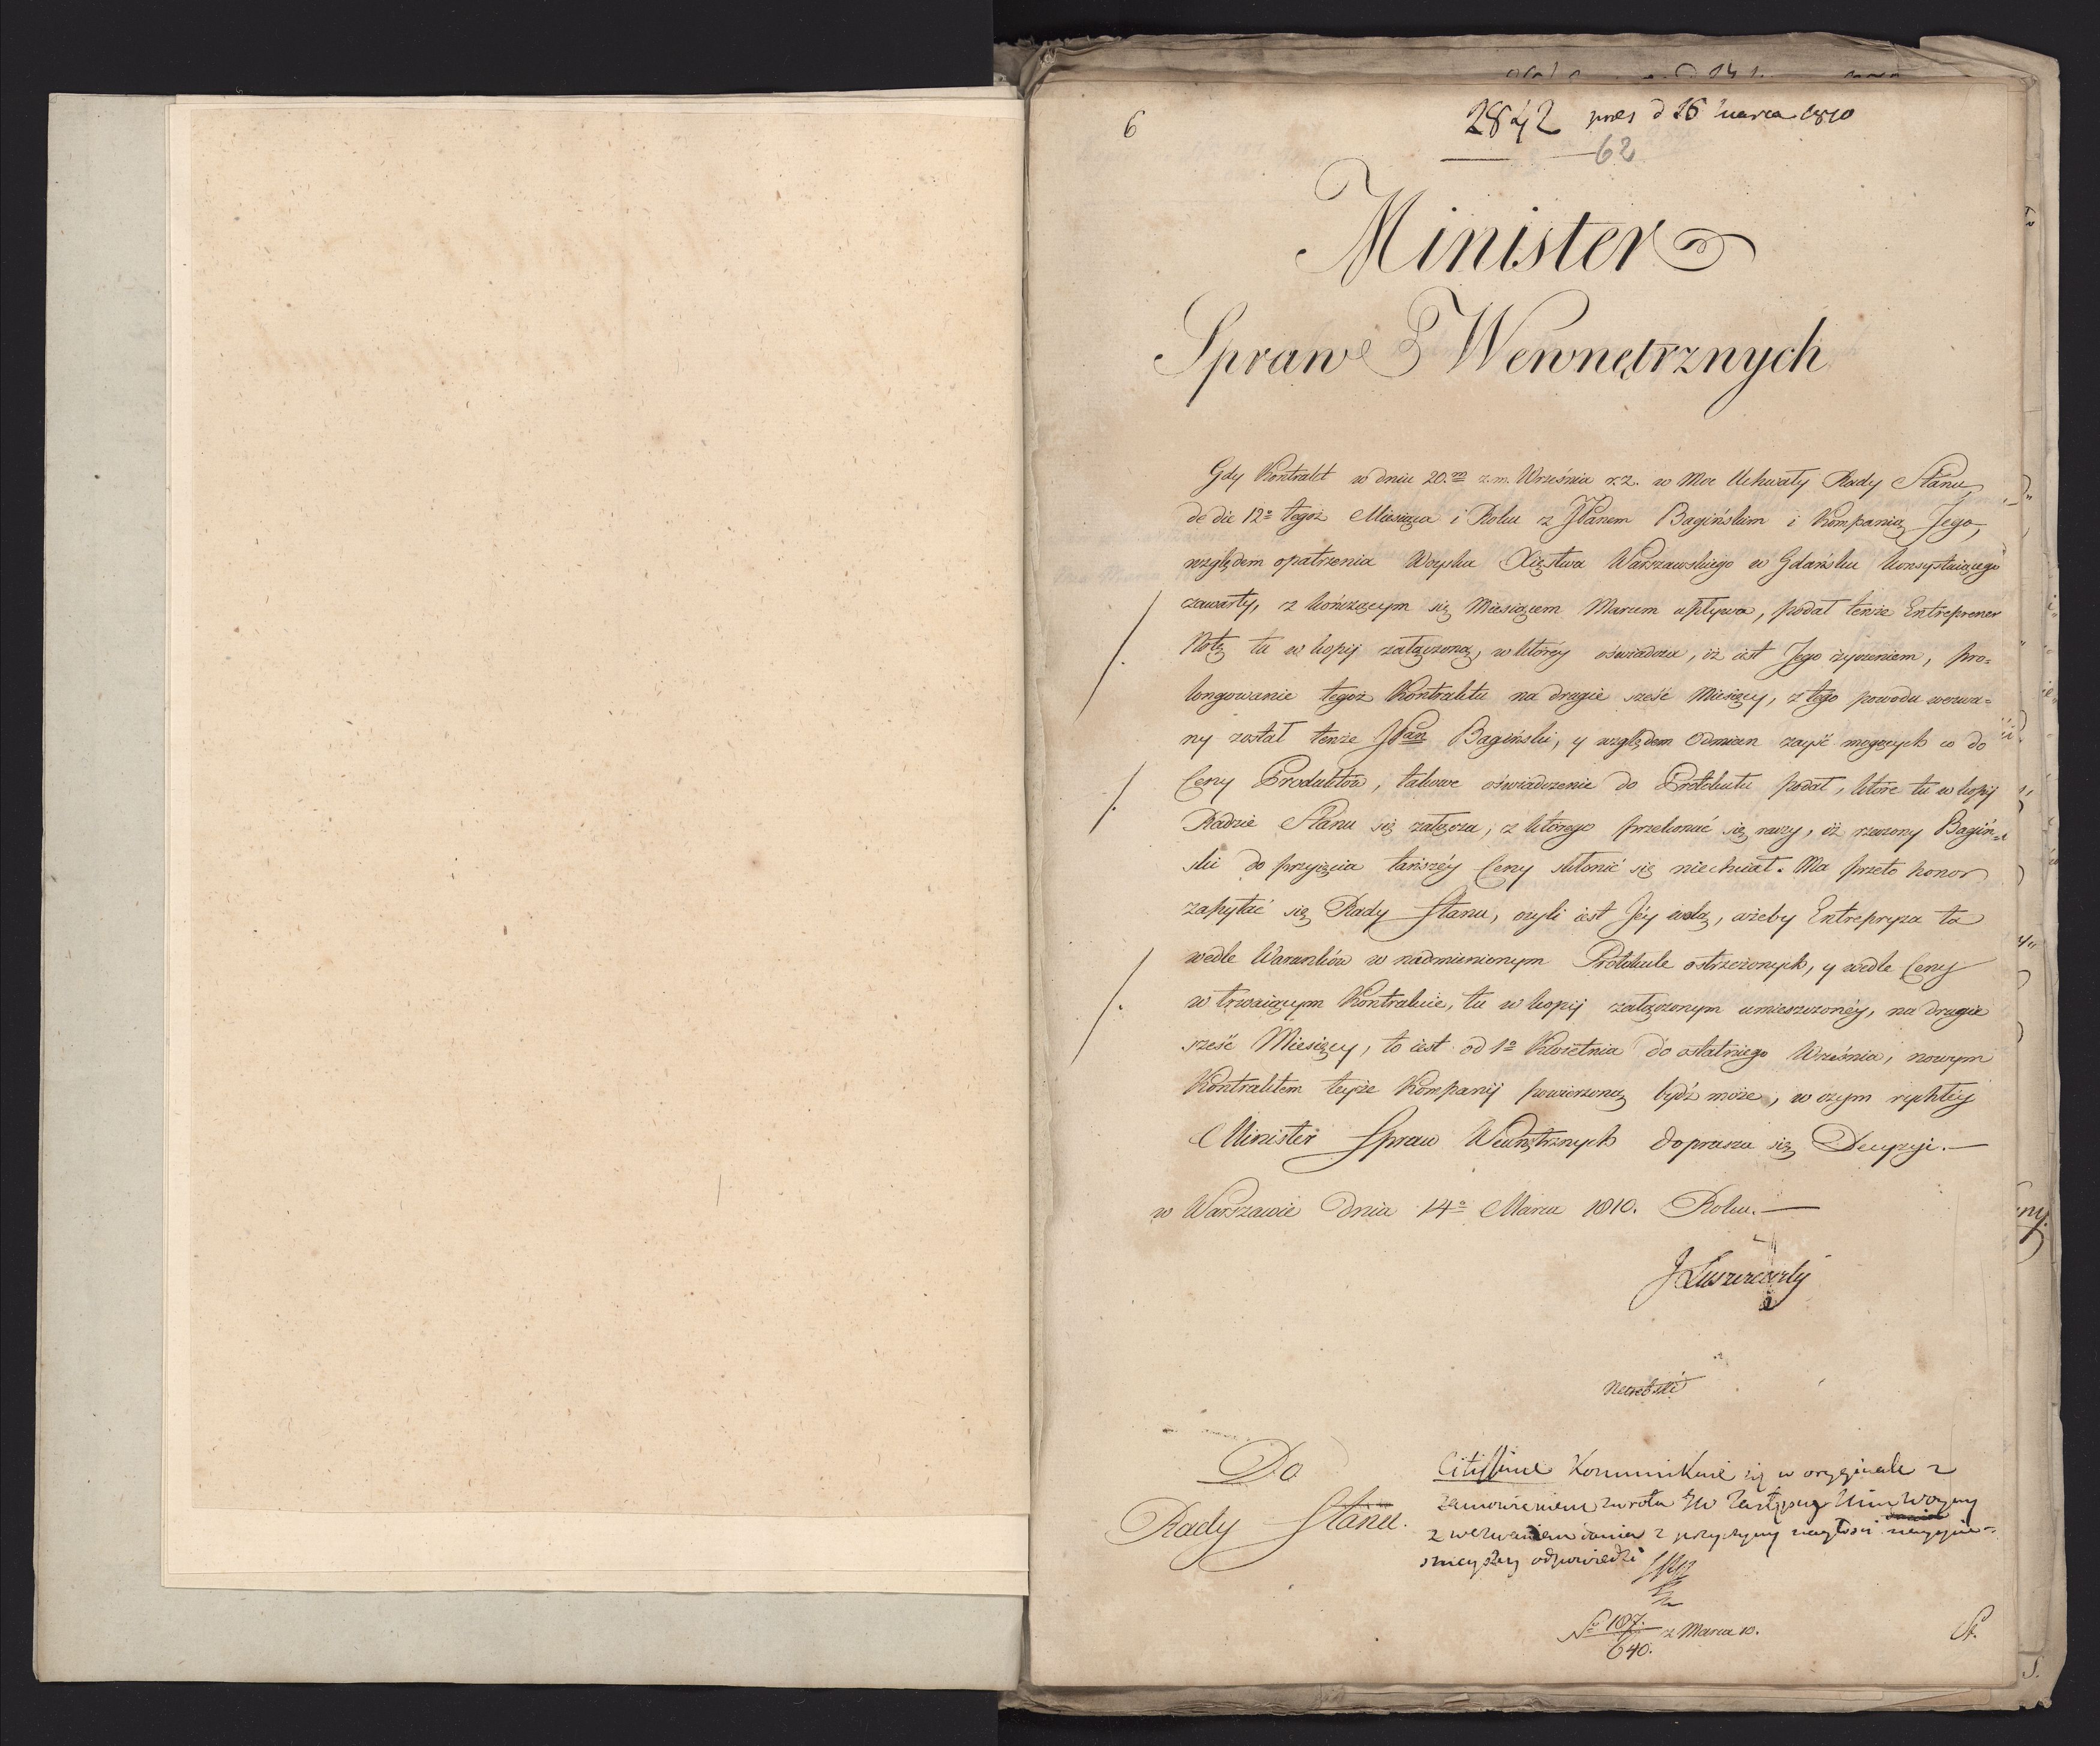 6
2842 pres d 16 Marca 1810
62
Minister
Spraw Wewnętrznych
Gdy Kontrakt w dniu 20.m z.m. Września r.z. w Moc Uchwały Rady Stanu,
de die 12o tegoż Miesiąca i Roku z JPanem Bagińskim i Kompanią Jego,
względem opatrzenia Woyska Xięstwa Warszawskiego w Gdańsku konsystuiącego
zawarty, z kończącym się Miesiącem Marcem upływa, podał tenże Entreprener
Notę tu w kopij załączoną, w którey oświadcza, iż iest Jego życzeniem, pro=
longowanie tegoż Kontraktu na drugie sześć Miesięcy, z tego powodu wezwa=
ny został tenże JPan Bagiński, y względem Odmian zayść mogących co do
Ceny Produktów, takowe oświadczenie do Protokułu podał, które tu w kopij
Radzie Stanu się załącza, z którego przekonać się raczy, iż rzeczony Bagiń=
ski do przyięcia tańszéy Ceny skłonić się niechciał. Ma przeto honor
zapytać się Rady Stanu, czyli iest Jéy wolą, ażeby Entrepryza ta
wedle Warunków w nadmienionym Protokule ostrzeżonych, y wedle Ceny
w trwaiącym Kontrakcie, tu w kopij załączonym umieszczonéy, na drugie
sześć Miesięcy, to iest od 1o Kwietnia do ostatniego Września, nowym
Kontraktem teyże Kompanij powierzoną bydź może, w czym rychłéy
Minister Spraw Wewnętrznych doprasza się Decyzyi.—
w Warszawie Dnia 14o Marca 1810. Roku.—
J Łuszczewski
Do
Rady Stanu.
Citissime Kommunikuie się w oryginale z
zamówieniem zwrotu JW Zastępcy Min Woyny
z wezwaniem dania z przyczyny nagłości
odpowiedzi
No 187./640. z Marca 10.